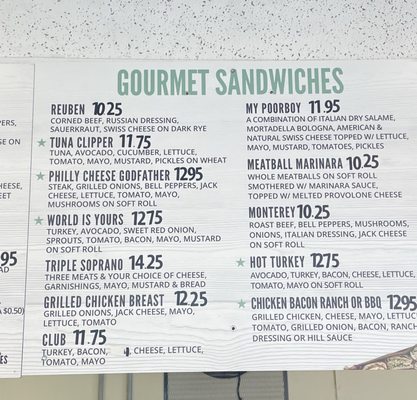 GOURMET SANDWICHES
REUBEN 10.25
CORNED BEEF, RUSSIAN DRESSING,
SAUERKRAUT, SWISS CHEESE ON DARK RYE
TUNA CLIPPER 11.75
TUNA, AVOCADO, CUCUMBER, LETTUCE,
TOMATO, MAYO, MUSTARD, PICKLES ON WHEAT
PHILLY CHEESE GODFATHER 1295
STEAK, GRILLED ONIONS, BELL PEPPERS, JACK
CHEESE, LETTUCE, TOMATO, MAYO,
MUSHROOMS ON SOFT ROLL
WORLD IS YOURS 1275
TURKEY, AVOCADO, SWEET RED ONION,
SPROUTS, TOMATO, BACON, MAYO, MUSTARD
ON SOFT ROLL
TRIPLE SOPRANO 14.25
THREE MEATS & YOUR CHOICE OF CHEESE,
GARNISHINGS, MAYO, MUSTARD & BREAD
GRILLED CHICKEN BREAST 12.25
GRILLED ONIONS, JACK CHEESE, MAYO,
LETTUCE, TOMATO
CLUB 11.75
TURKEY, BACON, CHEESE, LETTUCE,
TOMATO, MAYO
MY POORBOY 11.95
A COMBINATION OF ITALIAN DRY SALAME,
MORTADELLA BOLOGNA, AMERICAN &
NATURAL SWISS CHEESE TOPPED W/ LETTUCE,
MAYO, MUSTARD, TOMATOES, PICKLES
MEATBALL MARINARA 10.25
WHOLE MEATBALLS ON SOFT ROLL
SMOTHERED W/ MARINARA SAUCE,
TOPPED W/ MELTED PROVOLONE CHEESE
MONTEREY 10.25
ROAST BEEF, BELL PEPPERS, MUSHROOMS,
ONIONS, ITALIAN DRESSING, JACK CHEESE
ON SOFT ROLL
HOT TURKEY 1275
AVOCADO, TURKEY, BACON, CHEESE, LETTUCE,
TOMATO, MAYO ON SOFT ROLL
CHICKEN BACON RANCH OR BBQ 1295
GRILLED CHICKEN, CHEESE, MAYO, LETTUCE,
TOMATO, GRILLED ONION, BACON, RANCH
DRESSING OR HILL SAUCE